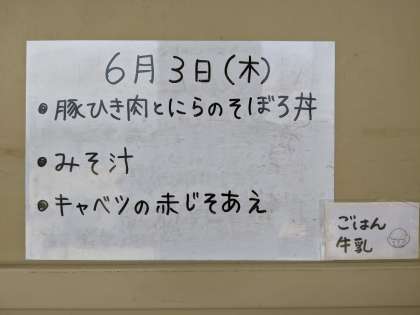 6月3日(木)
●豚ひき肉とにらのそぼろ丼
●みそ汁
●キャベツの赤じそあえ
ごはん
牛乳